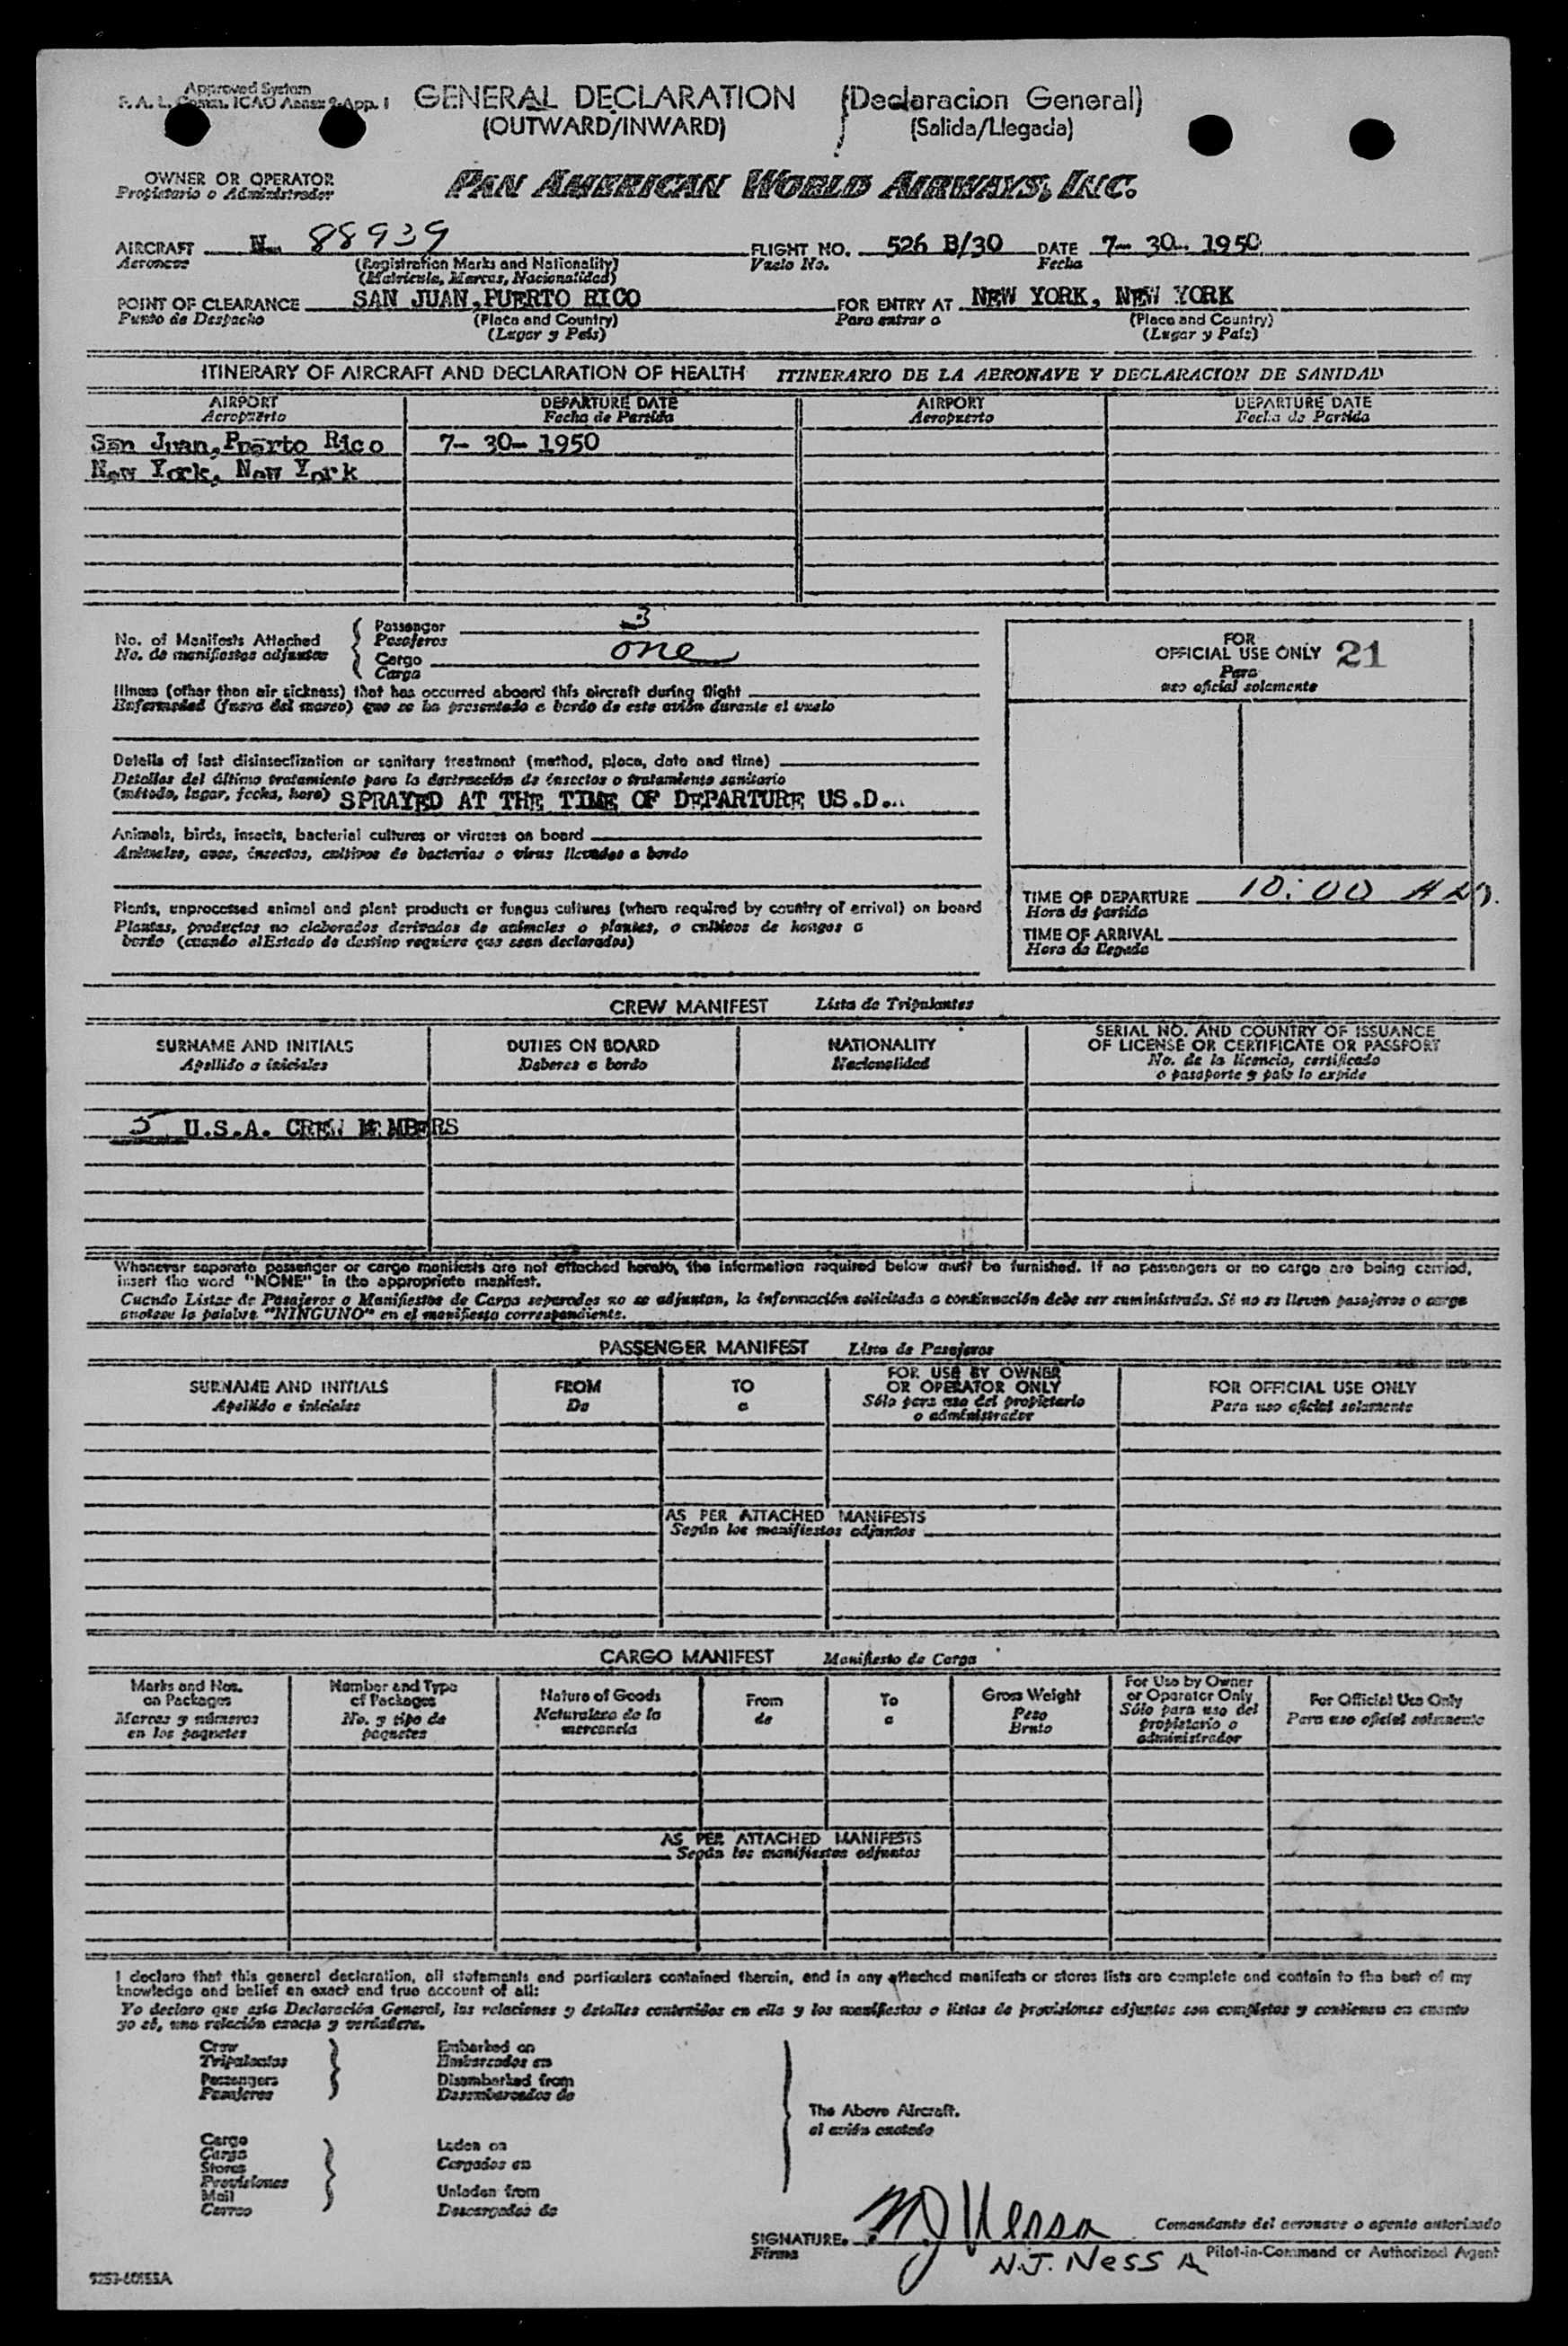 Approved System
F. A. L. Comm. ICAO Annex 9-App. 1
GENERAL DECLARATION (Declaracion General)
(OUTWARD/INWARD) (Salida/Llegada)
OWNER OR OPERATOR
Propietario o Administrador
PAN AMERICAN WORLD AIRWAYS, INC.
AIRCRAFT N 88939 FLIGHT NO. 526 B/30 DATE 7- 30- 1950
Aeronave (Registration Marks and Nationality) Vuelo No. Fecha
(Matricula, Marcas, Nacionalidad)
POINT OF CLEARANCE SAN JUAN, PUERTO RICO FOR ENTRY AT NEW YORK, NEW YORK
Punto de Despacho (Place and Country) Para entrar a (Place and Country)
(Lugar y País) (Lugar y País)
ITINERARY OF AIRCRAFT AND DECLARATION OF HEALTH ITINERARIO DE LA AERONAVE Y DECLARACION DE SANIDAD
AIRPORT DEPARTURE DATE AIRPORT DEPARTURE DATE
Aeropuerto Fecha de Partida Aeropuerto Fecha de Partida
San Juan, Puerto Rico 7- 30- 1950
New York, New York
No. of Manifests Attached
No. de manifiestos adjuntos
Passenger 3
Pasajeros
Cargo one
Carga
FOR
OFFICIAL USE ONLY 21
Para
uso oficial solamente
Illness (other than air sickness) that has occurred aboard this aircraft during flight
Enfermedad (fuera del mareo) que se ha presentado a bordo de este avión durante el vuelo
Details of last disinsectization or sanitary treatment (method, place, date and time)
Detalles del último tratamiento para la destrucción de insectos o tratamiento sanitario
(método, lugar, fecha, hora) SPRAYED AT THE TIME OF DEPARTURE US.D...
Animals, birds, insects, bacterial cultures or viruses on board
Animales, aves, insectos, cultivos de bacterias o virus llevados a bordo
Plants, unprocessed animal and plant products or fungus cultures (where required by country of arrival) on board
Plantas, productos no elaborados derivados de animales o plantas, o cultivos de hongos a
bordo (cuando el Estado de destino requiere que sean declarados)
TIME OF DEPARTURE 10:00 AM.
Hora de partida
TIME OF ARRIVAL
Hora de llegada
CREW MANIFEST Lista de Tripulantes
SURNAME AND INITIALS DUTIES ON BOARD NATIONALITY SERIAL NO. AND COUNTRY OF ISSUANCE
OF LICENSE OR CERTIFICATE OR PASSPORT
Apellido e iniciales Deberes a bordo Nacionalidad No. de la licencia, certificado
o pasaporte y país lo expide
5 U.S.A. CREW MEMBERS
Whenever separate passenger or cargo manifests are not attached hereto, the information required below must be furnished. If no passengers or no cargo are being carried,
insert the word "NONE" in the appropriate manifest.
Cuando Listas de Pasajeros o Manifiestos de Carga separados no se adjuntan, la información solicitada a continuación debe ser suministrada. Si no se llevan pasajeros o carga
anotese la palabra "NINGUNO" en el manifiesto correspondiente.
PASSENGER MANIFEST Lista de Pasajeros
SURNAME AND INITIALS FROM TO FOR USE BY OWNER
OR OPERATOR ONLY FOR OFFICIAL USE ONLY
Apellido e iniciales De a Sólo para uso del propietario
o administrador Para uso oficial solamente
AS PER ATTACHED MANIFESTS
Según los manifiestos adjuntos
CARGO MANIFEST Manifiesto de Carga
Marks and Nos.
on Packages
Marcas y números
en los paquetes
Number and Type
of Packages
No. y tipo de
paquetes
Nature of Goods
Naturaleza de la
mercancía
From
de
To
a
Gross Weight
Peso
Bruto
For Use by Owner
or Operator Only
Sólo para uso del
propietario o
administrador
For Official Use Only
Para uso oficial solamente
AS PER ATTACHED MANIFESTS
Según los manifiestos adjuntos
I declare that this general declaration, all statements and particulars contained therein, and in any attached manifests or stores lists are complete and contain to the best of my
knowledge and belief an exact and true account of all:
Yo declaro que esta Declaración General, las relaciones y detalles contenidos en ella y los manifiestos o listas de provisiones adjuntos son completos y contienen en cuanto
yo sé, una relación exacta y verdadera.
Crew
Tripulantes
Passengers
Pasajeros
Embarked on
Embarcados en
Disembarked from
Desembarcados de
The Above Aircraft.
el avión anotado
Cargo
Carga
Stores
Provisiones
Mail
Correo
Laden on
Cargados en
Unladen from
Descargados de
SIGNATURE. NJ Nessa Comandante del aeronave o agente autorizado
Firma N.J. NESSA Pilot-in-Command or Authorized Agent